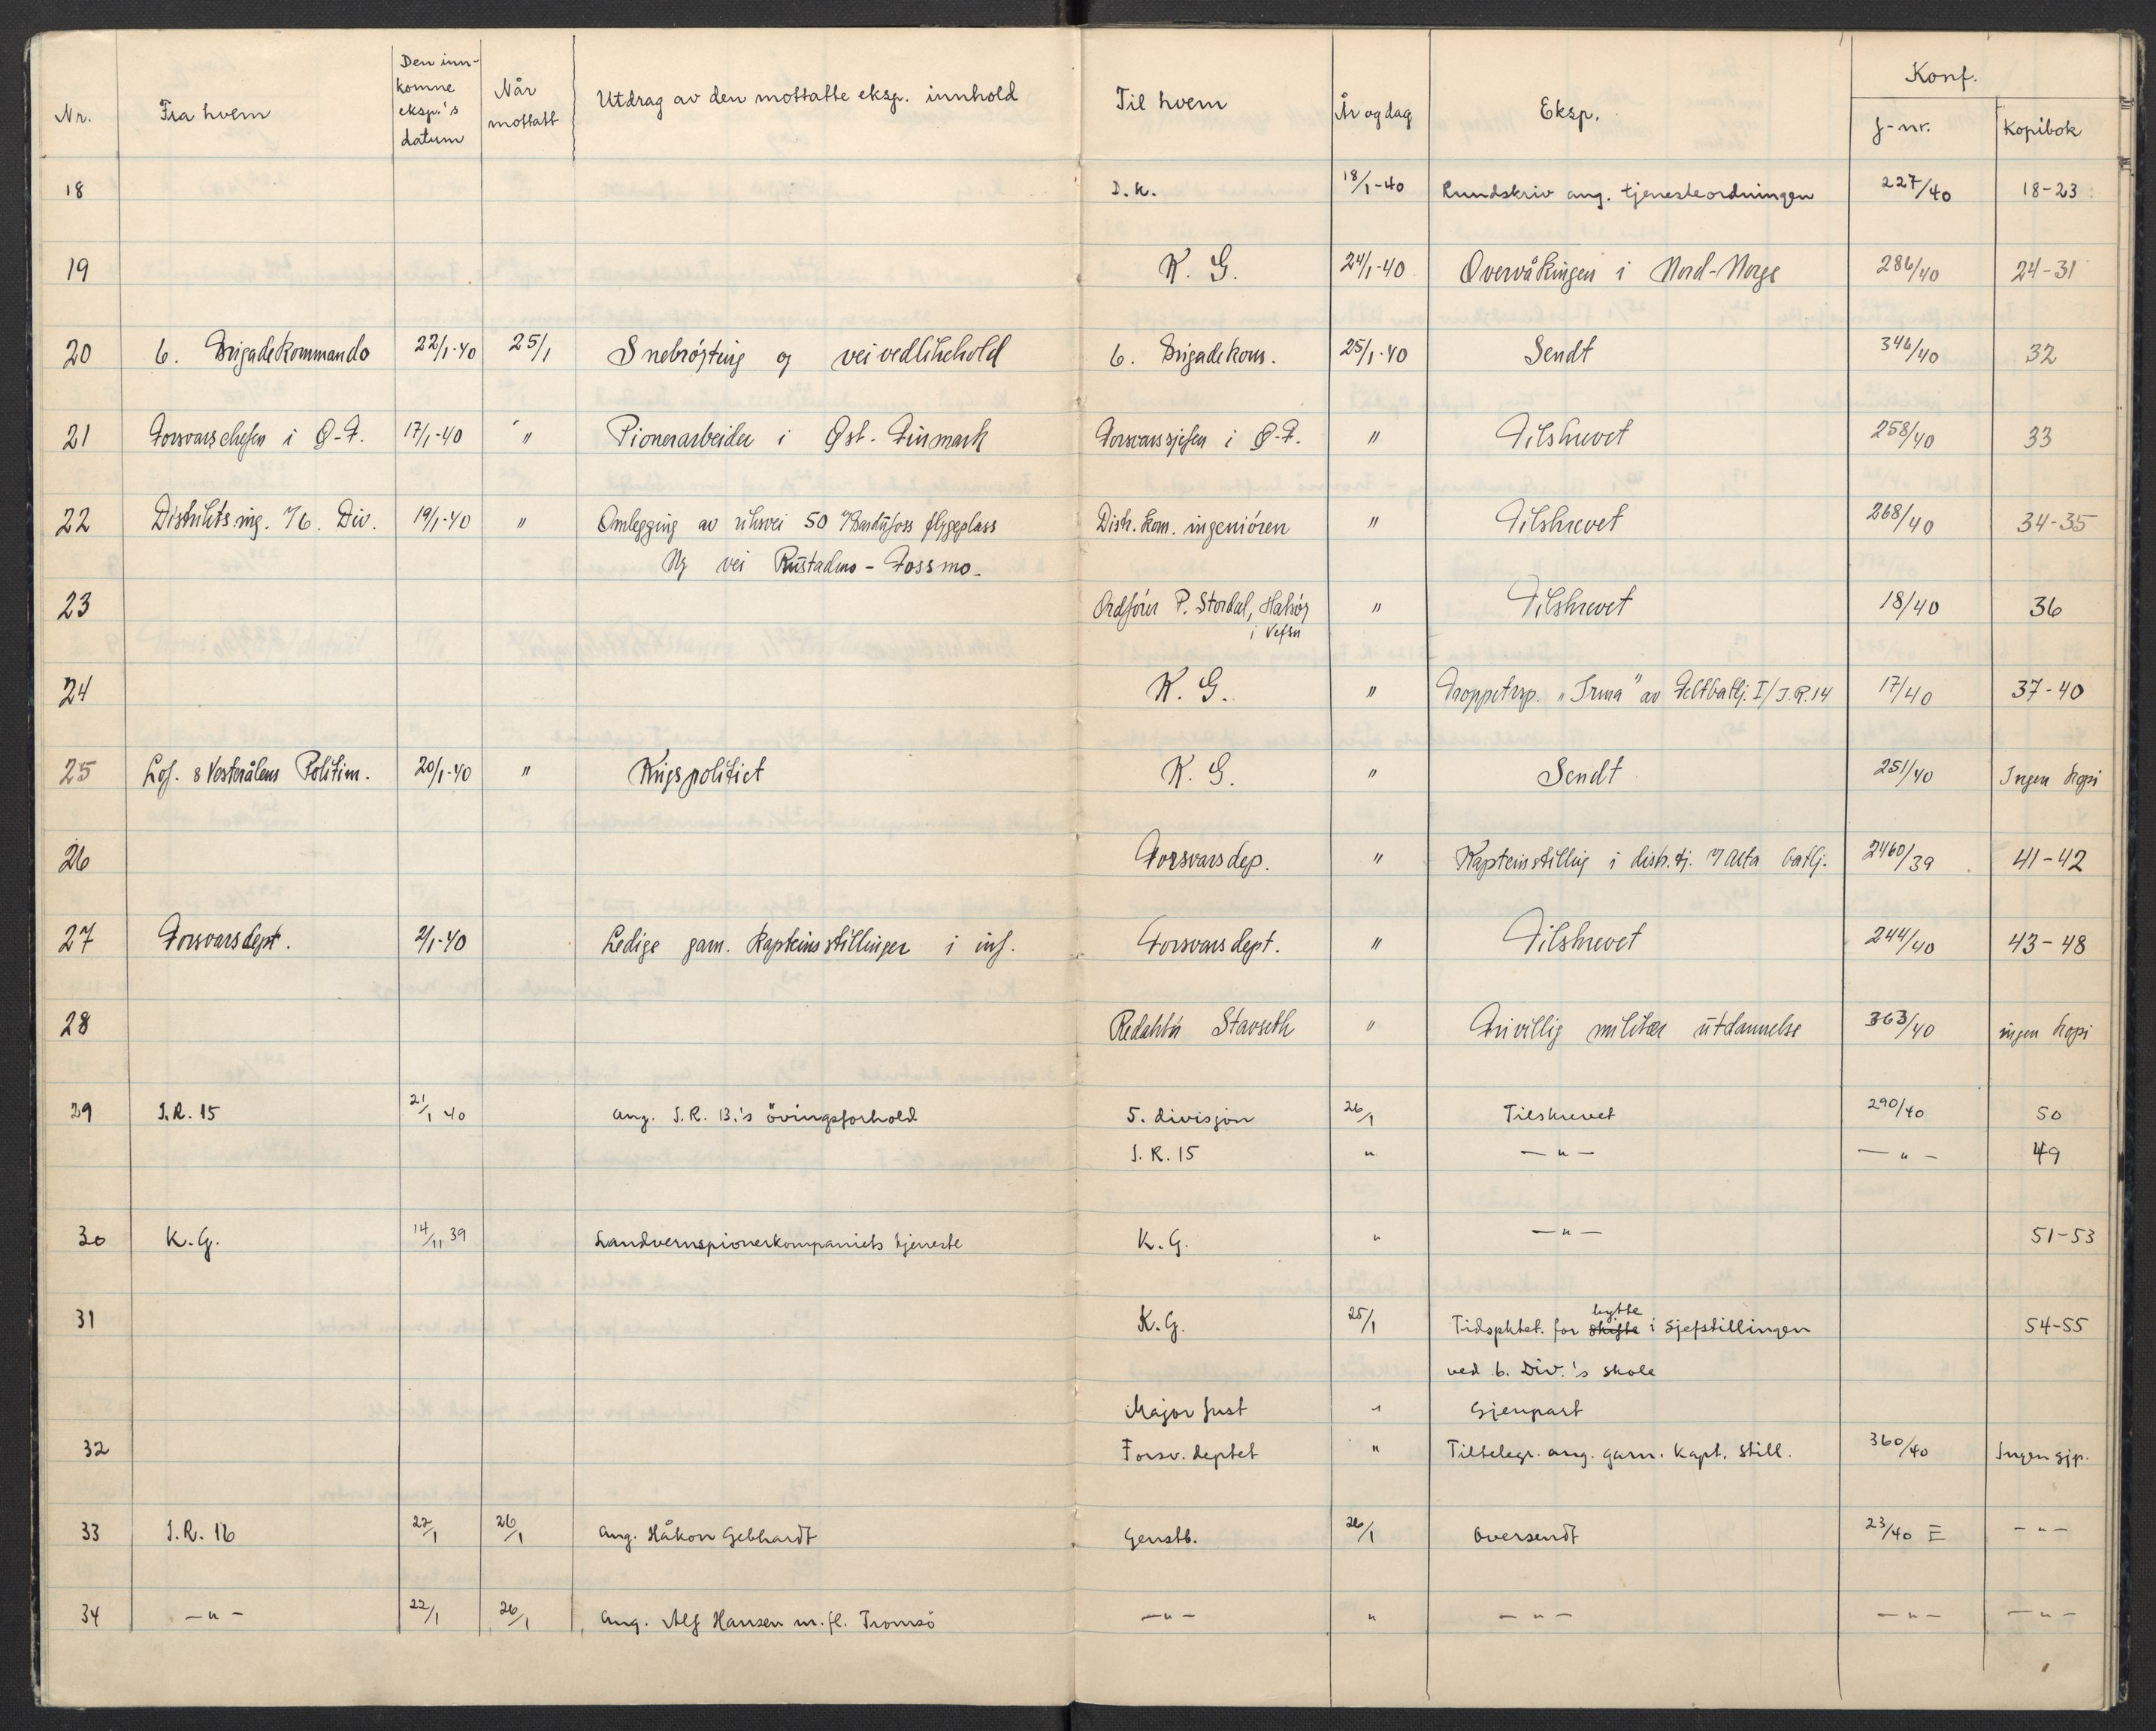 Nr. Fra hvem Den innkomne eksp.'s datum Når mottatt Utdrag av den mottatte eksp. innhold Til hvem År og dag Eksp. Konf. J-nr. Kopibok
18 D.K. 18/1-40 Rundskriv ang. tjenesteordningen 227/40 18-23
19 K. G. 24/1-40 Overvåkingen i Nord-Norge 286/40 24-31
20 6. Brigadekommando 22/1-40 25/1 Snebrøyting og veivedlikehold 6. Brigadekom. 25/1-40 Sendt 346/40 32
21 Forsvarschefen i Ø-F. 17/1-40 " Pionerarbeider i Øst-Finmark Forsvarssjefen i Ø-F. " Tilskrevet 258/40 33
22 Distriktsing. 7/6. Div. 19/1-40 " Omlegging av riksvei 50 v/Bardufoss flygeplass Distr. kom. ingeniøren " Tilskrevet 268/40 34-35
Ny vei Rustadmo - Fossmo.
23 Ordfører P. Stordal, Halsøy " Tilskrevet 18/40 36
i Vefsn
24 K. G. " Troppetrsp. "Irma" av Feltbatlj. I/J.R.14 17/40 37-40
25 Lof. & Vesterålens Politim. 20/1-40 " Krigspolitiet K. G. " Sendt 251/40 Ingen kopi
26 Forsvarsdep. " Kapteinstilling i distr. tj. v/Alta batlj. 2460/39 41-42
27 Forsvarsdept. 2/1-40 Ledige garn. kapteinsstillinger i inf. Forsvarsdept. " Tilskrevet 244/40 43-48
28 Redaktør Stavseth " Frivillig militær utdannelse 363/40 ingen kopi
29 I.R. 15 21/1 40 Ang. I.R. 13.'s övingsforhold 5. divisjon 26/1 Tilskrevet 290/40 50
I.R. 15 " -"- -"- 49
30 K.G. 14/11 39 Landvernspionerkompaniets tjeneste K.G. " -"- 51-53
31 K.G. 25/1 Tidspktet. for skifte bytte i sjefstillingen 54-55
ved 6. Div.'s skole
Major Just " Gjenpart
32 Forsv. deptet " Tiltelegr. ang. garn. kapt. still. 360/40 Ingen gjp.
33 I.R. 16 22/1 26/1 Ang. Håkon Gebhardt Genstb. 26/1 Oversendt 23/40 II -"-
34 -"- 22/1 26/1 Ang. Alf Hansen m.fl. Tromsö -"- " -"- -"- -"-